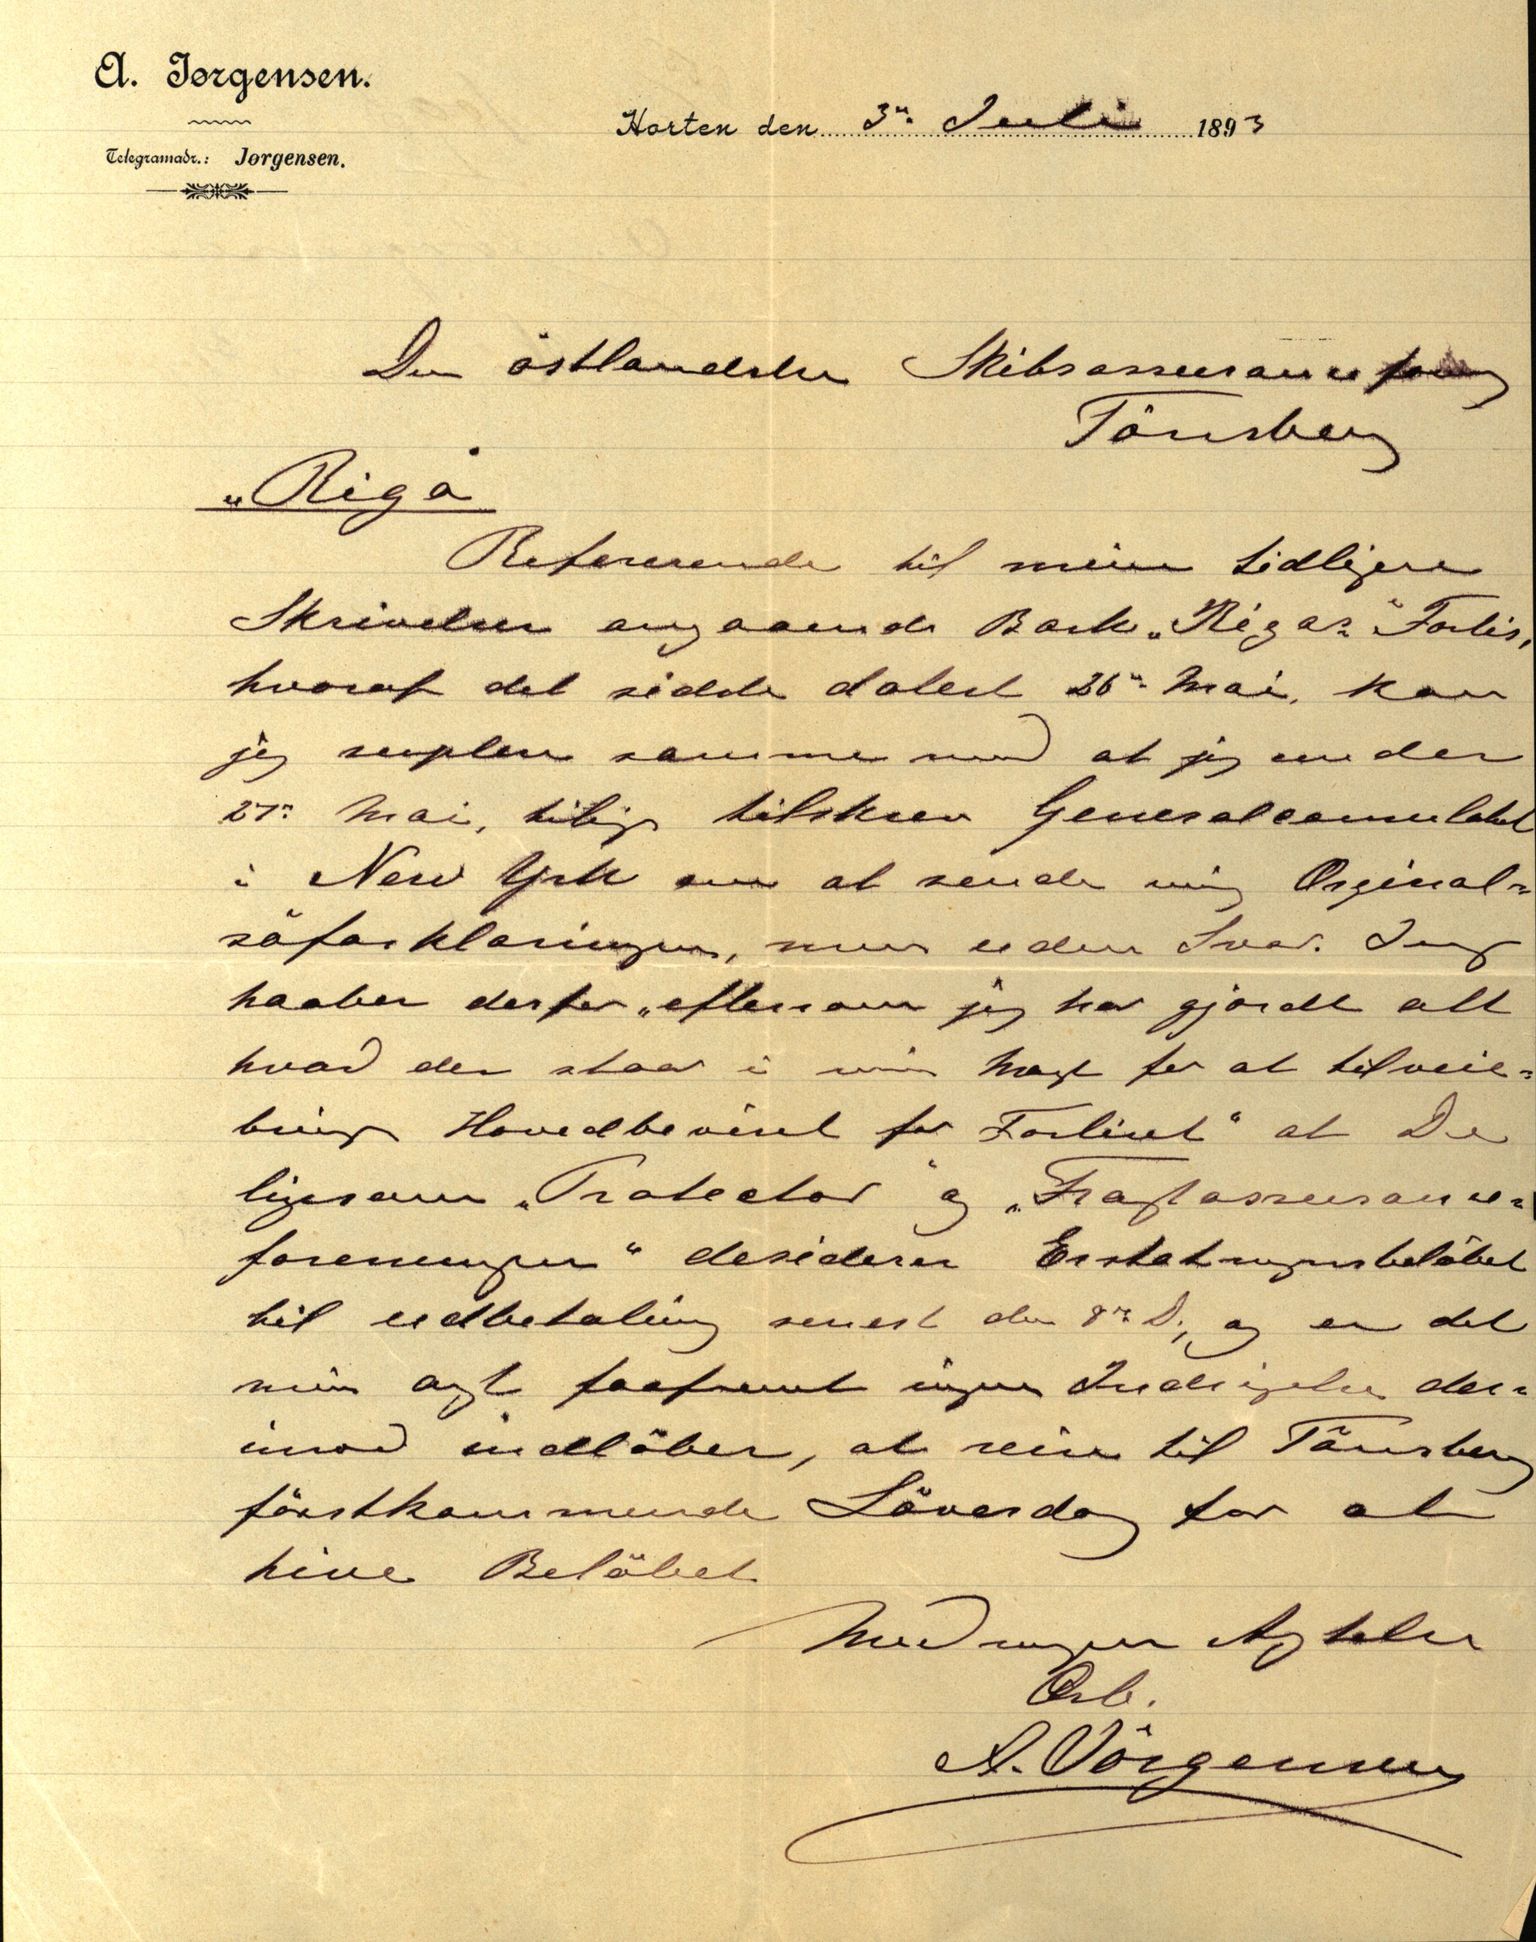 A. Jørgensen.
Telegramadr.: Jørgensen.
Horten den 3die Juli 1893
Den östlandske Skibsassuranceforening
Tönsberg
„Riga"
Refererende til mine tidligere
Skrivelser angaaende Bark „Rigas" Forlis,
hvoraf det sidste datert 26de Mai, kan
jeg suplere samme med at jeg under
27de Mai, tillige tilskrev Generalconsulatet
i New York om at sende mig Orginal-
söforklaringen, men uden Svar. Jeg
haaber derfor „eftersom jeg har gjordt alt
hvad der staar i min Magt for at tilveie-
bringe Hovedbeviset for Forliset" at De
ligesom „Protector" og „Fragtassurance-
foreningen" desiderer Erstatningsbelöbet
til udbetaling senest den 8de D., og er det
min agt saafremt ingen Indsigelse der-
imod indlöber, at reise til Tönsberg
förstkommende Löverdag for at
hæve Belöbet
Med megen Agtelse
Erb.
A. Jörgensen